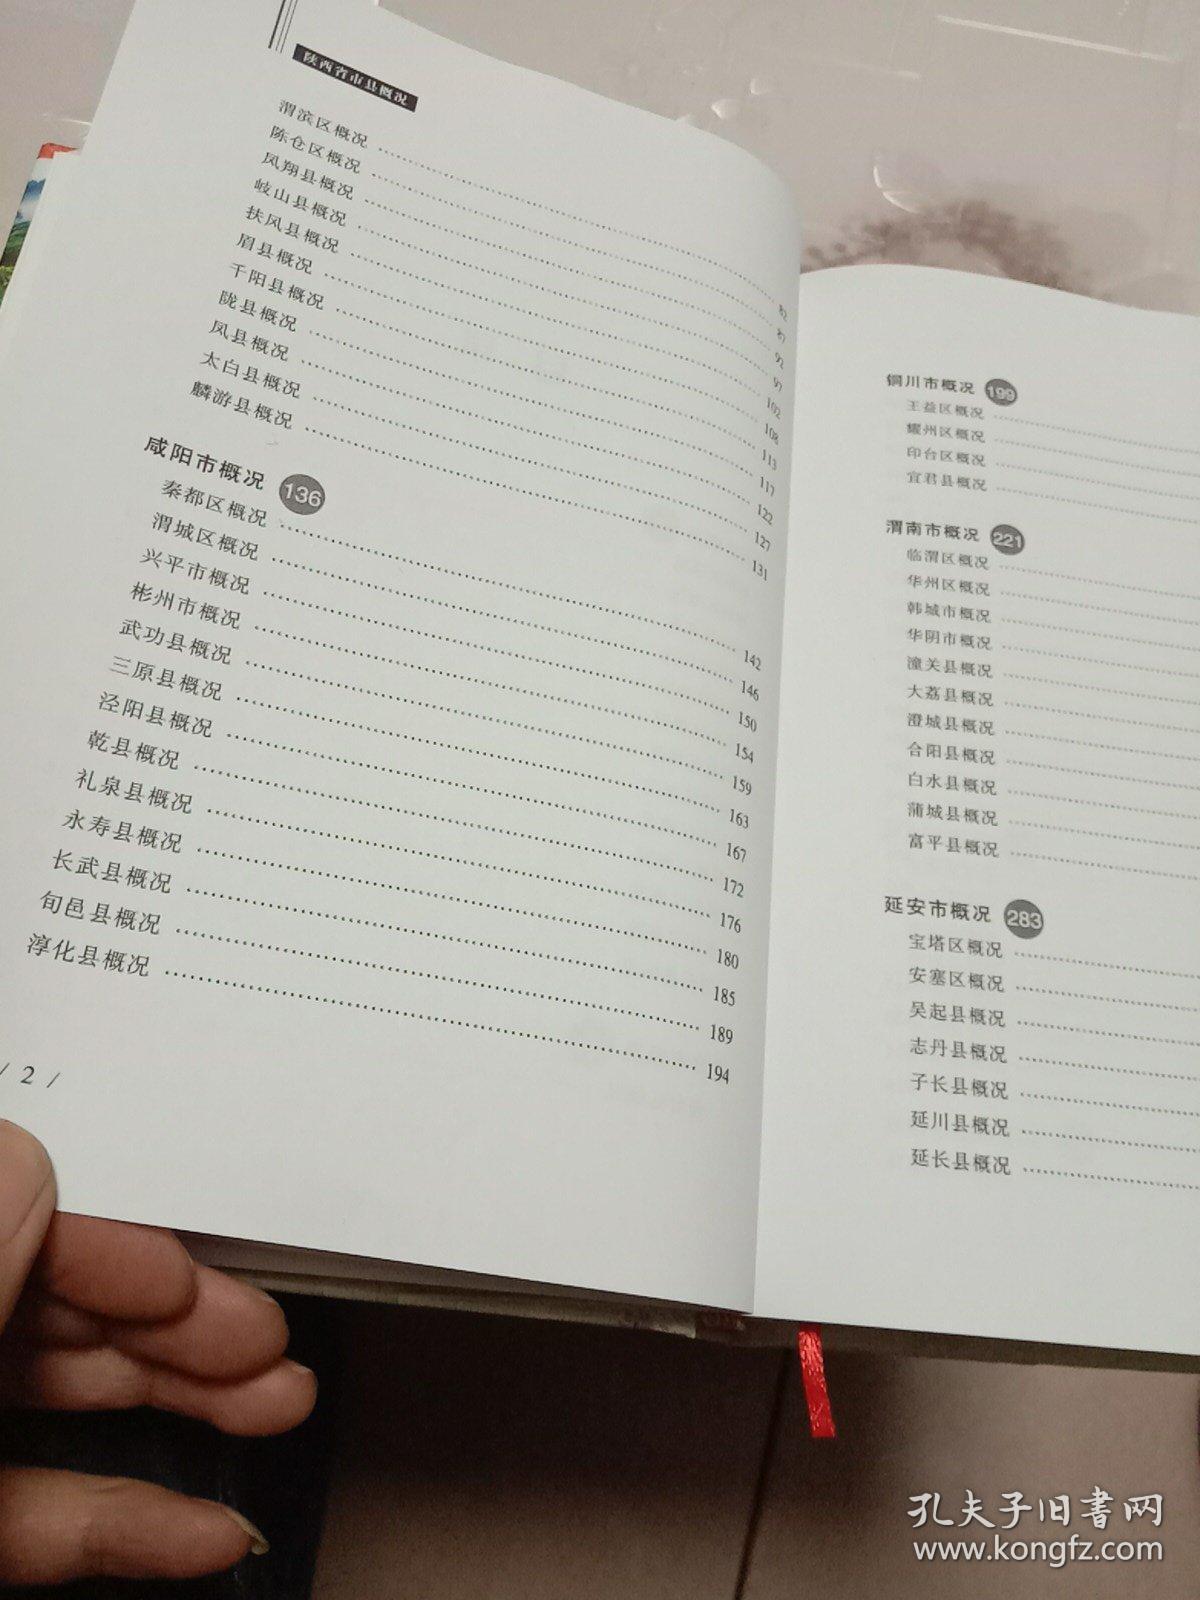 陕西省市县概况
渭滨区概况 …… 82
陈仓区概况 …… 87
凤翔县概况 …… 92
岐山县概况 …… 97
扶风县概况 …… 102
眉县概况 …… 108
千阳县概况 …… 113
陇县概况 …… 117
凤县概况 …… 122
太白县概况 …… 127
麟游县概况 …… 131
咸阳市概况 136
秦都区概况 …… 142
渭城区概况 …… 146
兴平市概况 …… 150
彬州市概况 …… 154
武功县概况 …… 159
三原县概况 …… 163
泾阳县概况 …… 167
乾县概况 …… 172
礼泉县概况 …… 176
永寿县概况 …… 180
长武县概况 …… 185
旬邑县概况 …… 189
淳化县概况 …… 194
/ 2 /
铜川市概况 199
王益区概况 ……
耀州区概况 ……
印台区概况 ……
宜君县概况 ……
渭南市概况 221
临渭区概况 ……
华州区概况 ……
韩城市概况 ……
华阴市概况 ……
潼关县概况 ……
大荔县概况 ……
澄城县概况 ……
合阳县概况 ……
白水县概况 ……
蒲城县概况 ……
富平县概况 ……
延安市概况 283
宝塔区概况 ……
安塞区概况 ……
吴起县概况 ……
志丹县概况 ……
子长县概况 ……
延川县概况 ……
延长县概况 ……
孔夫子旧书网
www.kongfz.com